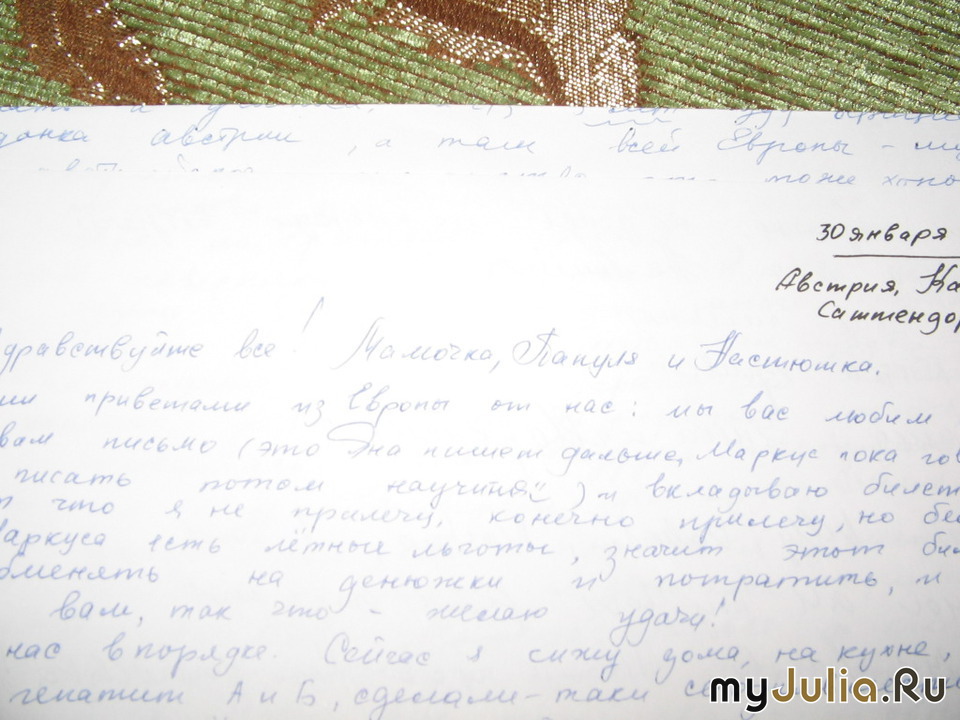 донка австрии, а там всей Европы -
може
30 января
Австрия, Ка
Саттендор
дравствуйте все! Мамочка, Папуля и Настюшка.
ми приветами из Европы от нас: мы вас любим
вам письмо (это Яна пишет дальше, Маркус пока гов
писать потом научится) и вкладываю билет
т что я не прилечу, конечно прилечу, но бес
аркуса есть лётные льготы, значит этот бил
бменять на денюжки и потратить, и
вам, так что - желаю удачи!
нас в порядке. Сейчас я сижу дома, на кухне,
гепатит А и Б, сделали-таки
myJulia.Ru